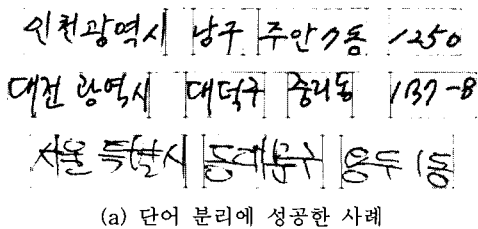 인천광역시 남구 주안7동 1250
대전 광역시 대덕구 중리동 137-8
서울 특별시 동대문구 용두1동
(a) 단어 분리에 성공한 사례